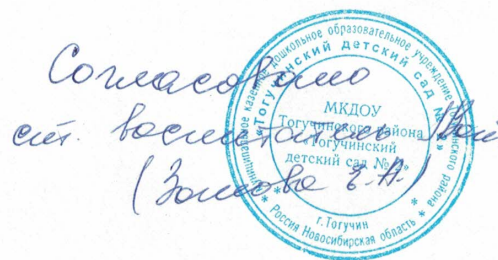 Согласовано
ст. воспитатель
муниципальное казенное дошкольное образовательное учреждение Тогучинского района
«Тогучинский детский сад №
МКДОУ
Тогучинского района
«Тогучинский
детский сад №
г. Тогучин
* Россия Новосибирская область *